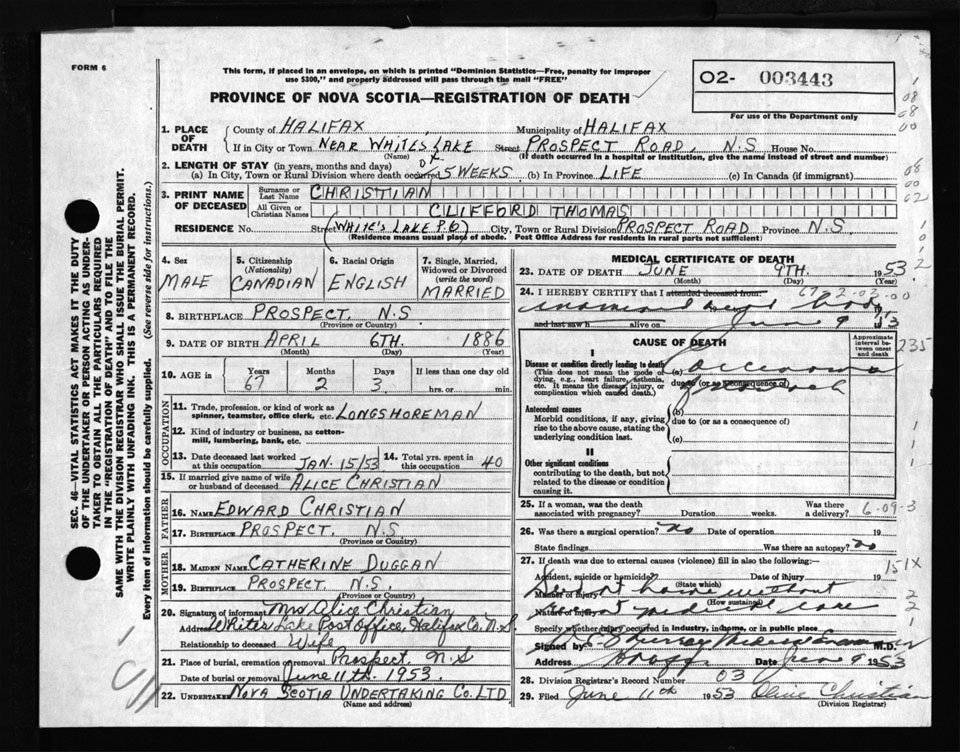 FORM 6
This form, if placed in an envelope, on which is printed "Dominion Statistics—Free, penalty for improper
use $300," and properly addressed will pass through the mail "FREE"
PROVINCE OF NOVA SCOTIA—REGISTRATION OF DEATH
02- 003443
For use of the Department only
1. PLACE OF DEATH
County of HALIFAX Municipality of HALIFAX
If in City or Town NEAR WHITES LAKE Street PROSPECT ROAD, N.S House No.
(Name) (If death occurred in a hospital or institution, give the name instead of street and number)
2. LENGTH OF STAY (in years, months and days)
(a) In City, Town or Rural Division where death occurred 5 WEEKS (b) In Province LIFE (c) In Canada (if immigrant)
3. PRINT NAME OF DECEASED
Surname or Last Name CHRISTIAN
All Given or Christian Names CLIFFORD THOMAS
RESIDENCE No. Street WHITE'S LAKE P.O City, Town or Rural Division PROSPECT ROAD Province N.S.
(Residence means usual place of abode. Post Office Address for residents in rural parts not sufficient)
4. Sex MALE
5. Citizenship (Nationality) CANADIAN
6. Racial Origin ENGLISH
7. Single, Married, Widowed or Divorced (write the word) MARRIED
8. BIRTHPLACE PROSPECT, N.S
(Province or Country)
9. DATE OF BIRTH APRIL 6TH. 1886
(Month) (Day) (Year)
10. AGE Years 67 Months 2 Days 3 If less than one day old hrs. or min.
OCCUPATION
11. Trade, profession, or kind of work as spinner, teamster, office clerk, etc. LONGSHOREMAN
12. Kind of industry or business, as cotton-mill, lumbering, bank, etc.
13. Date deceased last worked at this occupation JAN. 15/53
14. Total yrs. spent in this occupation 40
15. If married give name of wife or husband of deceased ALICE CHRISTIAN
FATHER
16. Name EDWARD CHRISTIAN
17. BIRTHPLACE PROSPECT, N.S.
(Province or Country)
MOTHER
18. MAIDEN NAME CATHERINE DUGGAN
19. BIRTHPLACE PROSPECT, N.S.
(Province or Country)
20. Signature of informant Mrs Alice Christian
Address Whites Lake Post Office, Halifax Co. N.S.
Relationship to deceased Wife
21. Place of burial, cremation or removal Prospect, N.S
Date of burial or removal June 11th. 1953.
22. UNDERTAKER NOVA SCOTIA UNDERTAKING CO. LTD
(Name and address)
MEDICAL CERTIFICATE OF DEATH
23. DATE OF DEATH JUNE 9TH. 1953
(Month) (Day) (Year)
24. I HEREBY CERTIFY that I attended deceased from: 67-2-03-00
and last saw h alive on June 9
CAUSE OF DEATH
Approximate interval between onset and death
I
Disease or condition directly leading to death
(This does not mean the mode of dying, e.g., heart failure, asthenia, etc. It means the disease, injury, or complication which caused death.)
(a) Carcinoma
due to (or as a consequence of)
235
Antecedent causes
Morbid conditions, if any, giving rise to the above cause, stating the underlying condition last.
(b)
due to (or as a consequence of)
(c)
II
Other significant conditions
contributing to the death, but not related to the disease or condition causing it.
25. If a woman, was the death associated with pregnancy? Duration weeks. Was there a delivery? 6-09-3
26. Was there a surgical operation? no Date of operation 19
State findings Was there an autopsy? no
27. If death was due to external causes (violence) fill in also the following:
151X
Accident, suicide or homicide? Date of injury 19
(State which)
Manner of injury
(How sustained)
Nature of injury
Specify whether injury occurred in industry, in home, or in public place
Signed by Murray Medical Examiner M.D.
Address Date June 9 1953
28. Division Registrar's Record Number 03
29. Filed June 11th 1953 Olive Christian
(Division Registrar)
SEC. 46—VITAL STATISTICS ACT MAKES IT THE DUTY
OF THE UNDERTAKER OR PERSON ACTING AS UNDER-
TAKER TO OBTAIN ALL THE PARTICULARS REQUIRED
IN THE "REGISTRATION OF DEATH" AND TO FILE THE
SAME WITH THE DIVISION REGISTRAR WHO SHALL ISSUE THE BURIAL PERMIT.
WRITE PLAINLY WITH UNFADING INK. THIS IS A PERMANENT RECORD.
Every item of information should be carefully supplied. (See reverse side for instructions.)